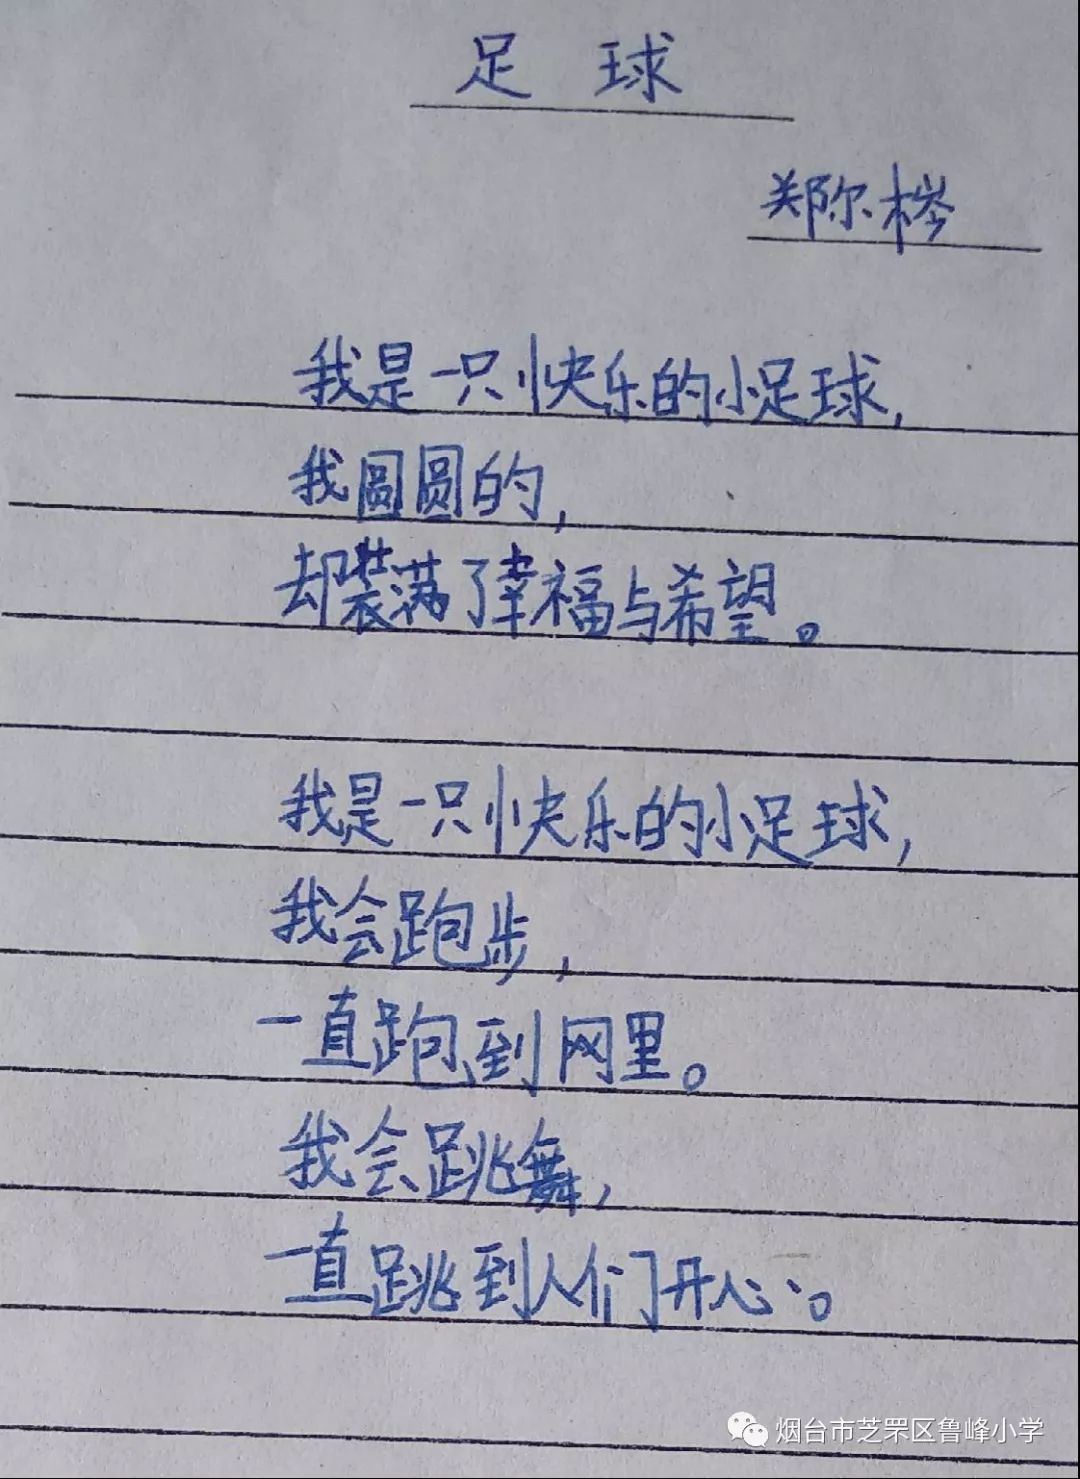 足球
郑尔梣
我是一只快乐的小足球,
我圆圆的,
却装满了幸福与希望。
我是一只快乐的小足球,
我会跑步,
一直跑到网里。
我会跳舞,
一直跳到人们开心。
烟台市芝罘区鲁峰小学